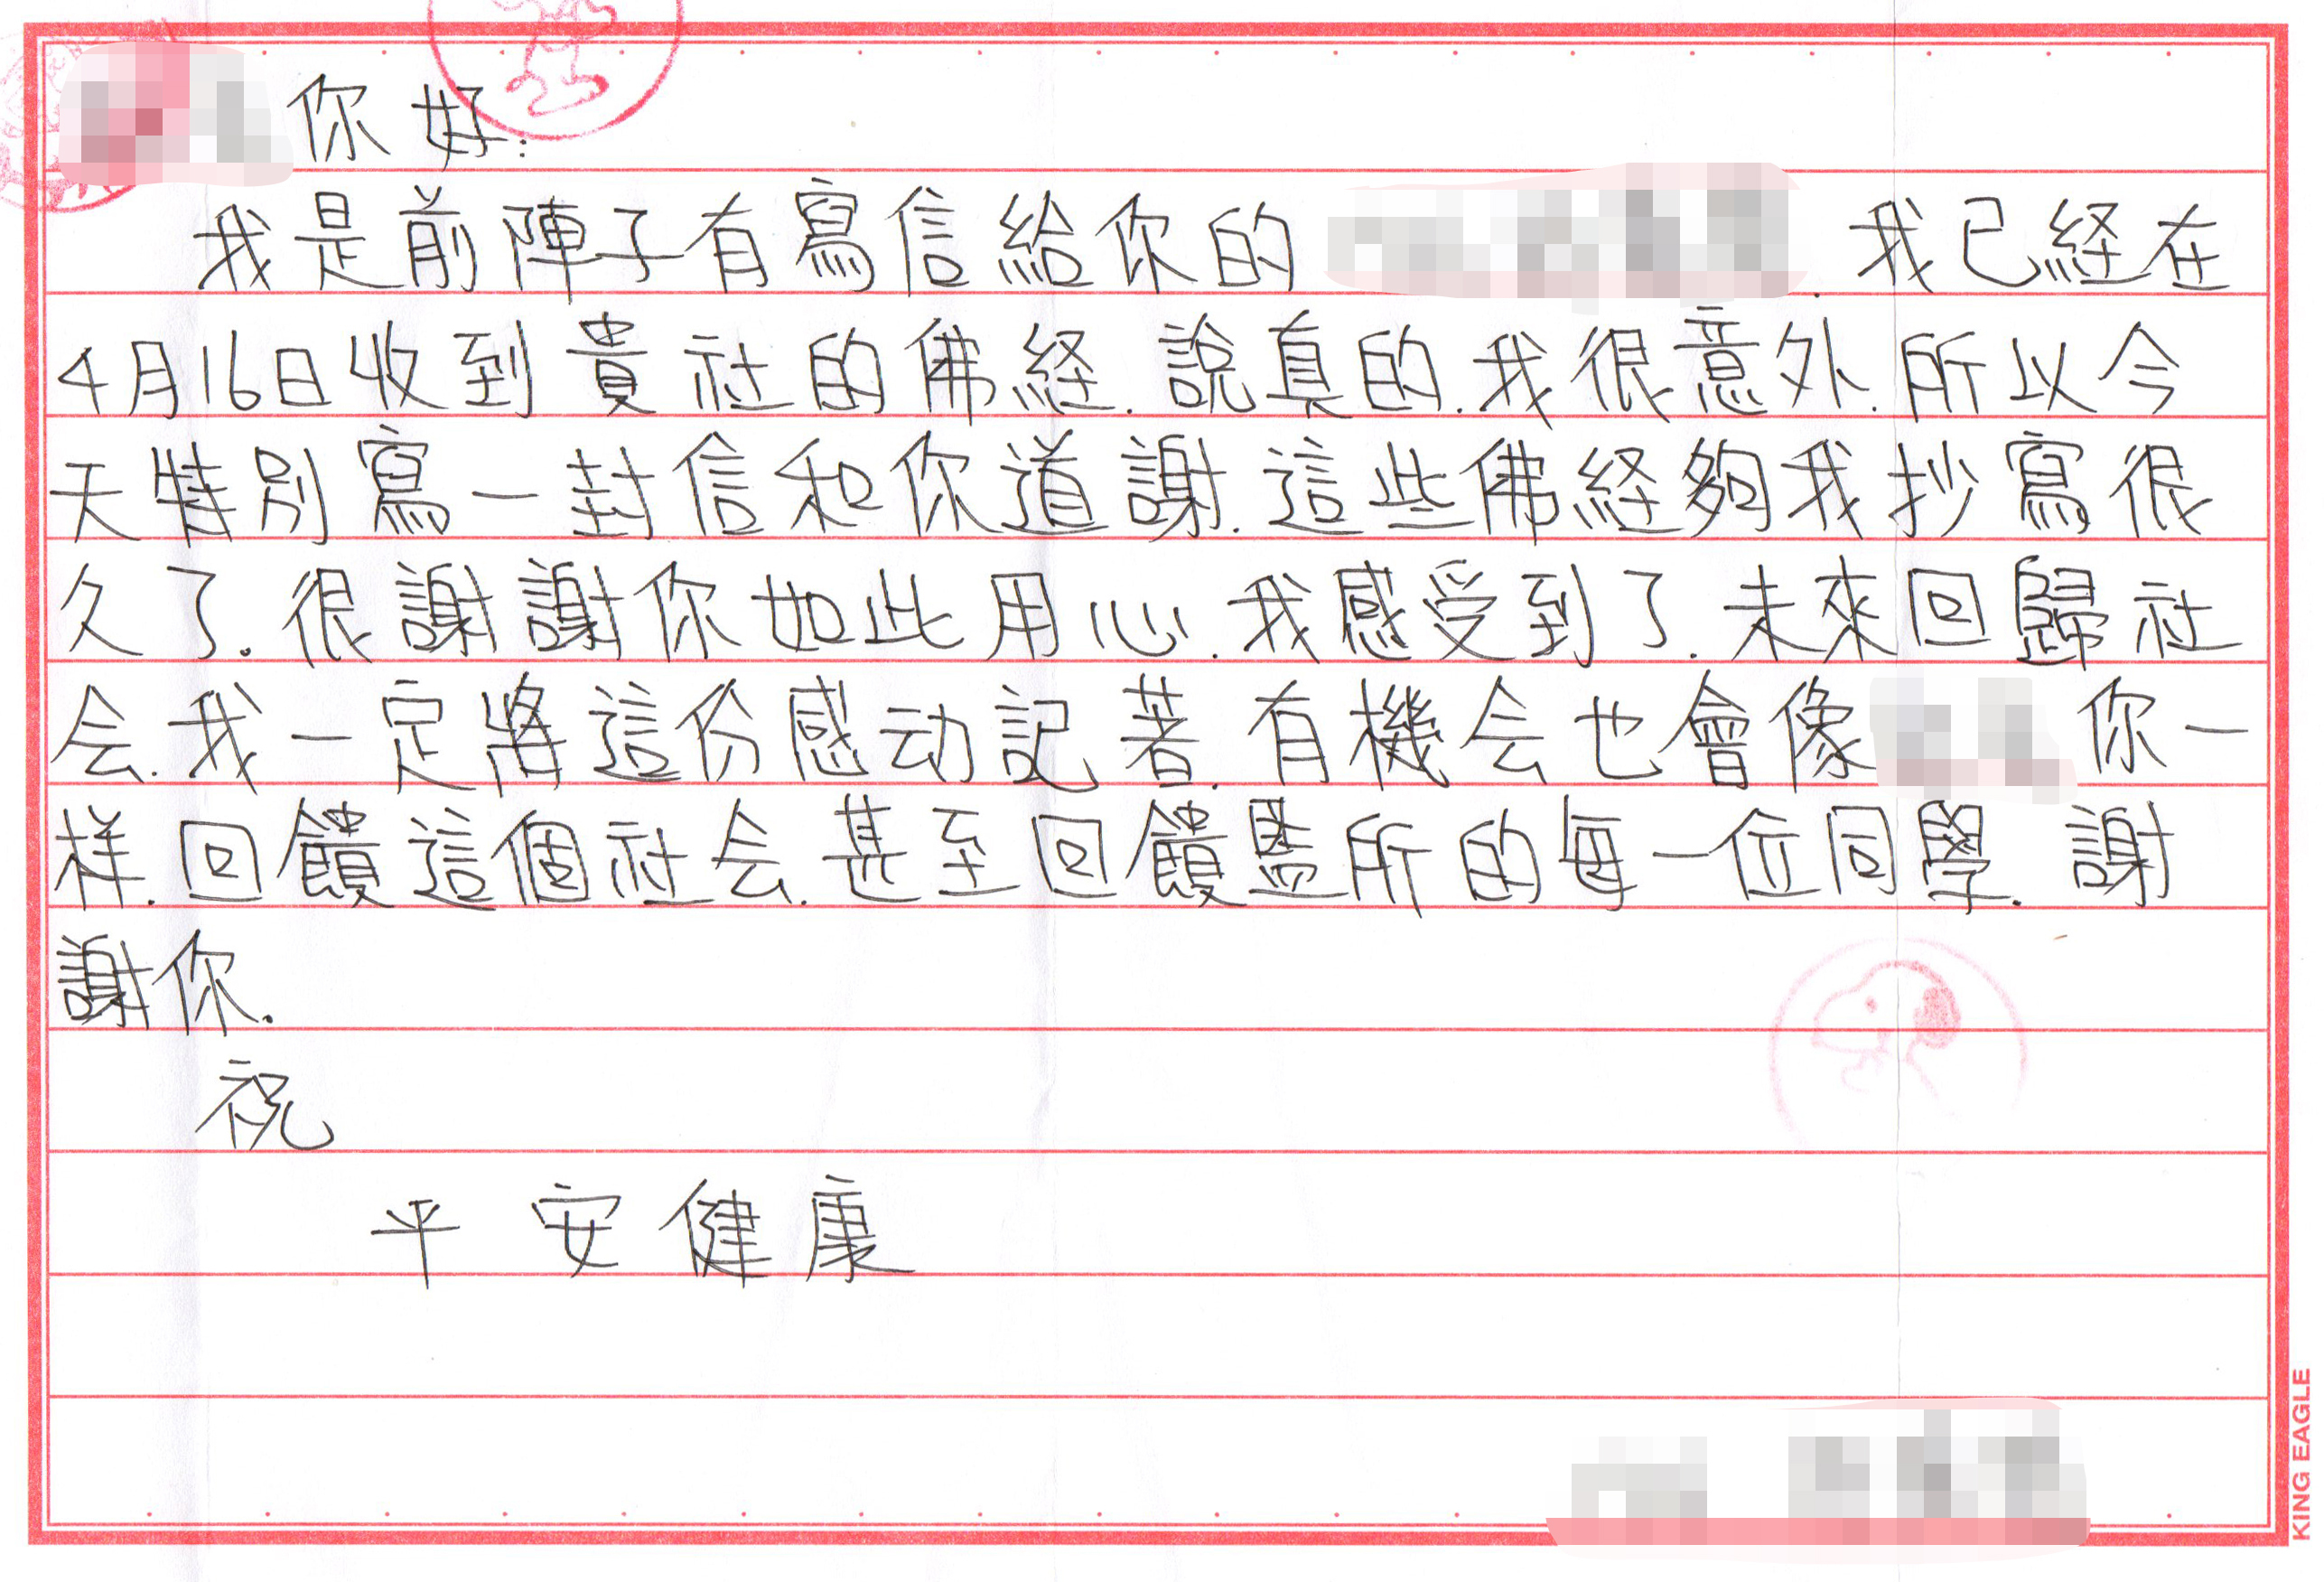 你好:
我是前陣子有寫信給你的 .我已経在
4月16日收到貴社的佛経.說真的.我很意外.所以今
天特別寫一封信和你道謝.這些佛経夠我抄寫很
久了.很謝謝你如此用心.我感受到了.未來回歸社
会.我一定將這份感动記著.有機会也會像 你一
样.回饋這個社会.甚至回饋監所的每一位同學.謝
謝你.
祝
平安健康
KING EAGLE